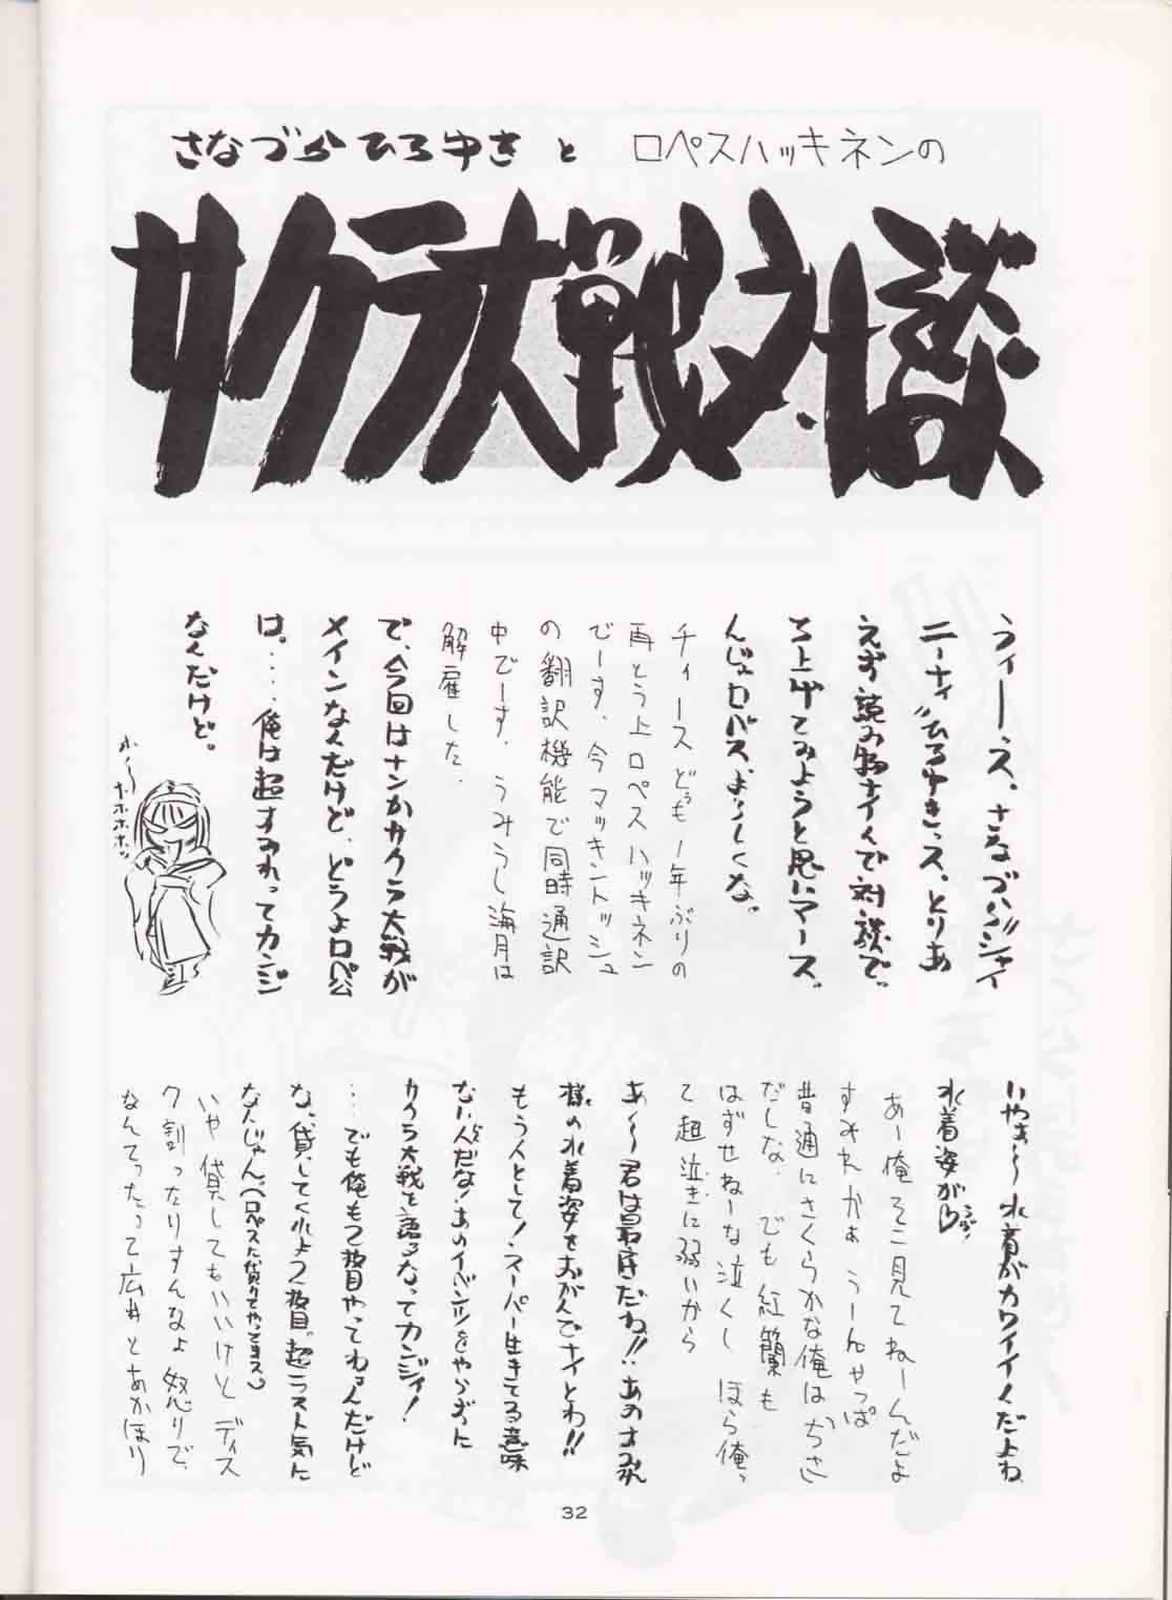 さなづらひろゆきとロペスハッキネンの
サクラ大戦対談
うぃーース。さなづら"シャイ
ニーナィ"ひろゆきっス。とりあ
えず読み物ナイんで対談で。
ち上げてみようと思いマース。
んじゃロバスよろしくな。
チィースどぅも1年ぶりの
再とう上ロペスハッキネン
でーす。今マッキントッシュ
の翻訳機能で同時通訳
中でーす。うみうし海月は
解雇した。
で、今回はナンかサクラ大戦が
メインなんだけど、どうよロペ公
は。‥‥俺は超すみれってカンジ
なんだけど。
ホ〜ホホホホッ
いやぁ〜水着がカワイイんだよね
水着姿が♡
あー俺そこ見てねーんだよ
すみれかぁうーんやっぱ
普通にさくらかな俺はぢさ
だしな。でも紅蘭も
はずせねーな泣くし ほら俺っ
て超泣きに弱いから
あ〜〜君は最低だね!!‥あのすみれ
様の水着姿をおがんでナイとわ!!
もう人として!スーパー生きてる意味
ない人だな!あのイベントをやらずに
サクラ大戦を語るなってカンジィ!
…でも俺もう2枚目やってねぇんだけど
な、貸してくれよう2枚目。超ラスト気に
なんじゃん。(ロペスに貸りてやってヨス。)
いや貸してもいいけどディス
ク割ったりすんなよ怒りで、
なんてったって広井とあかほり
32